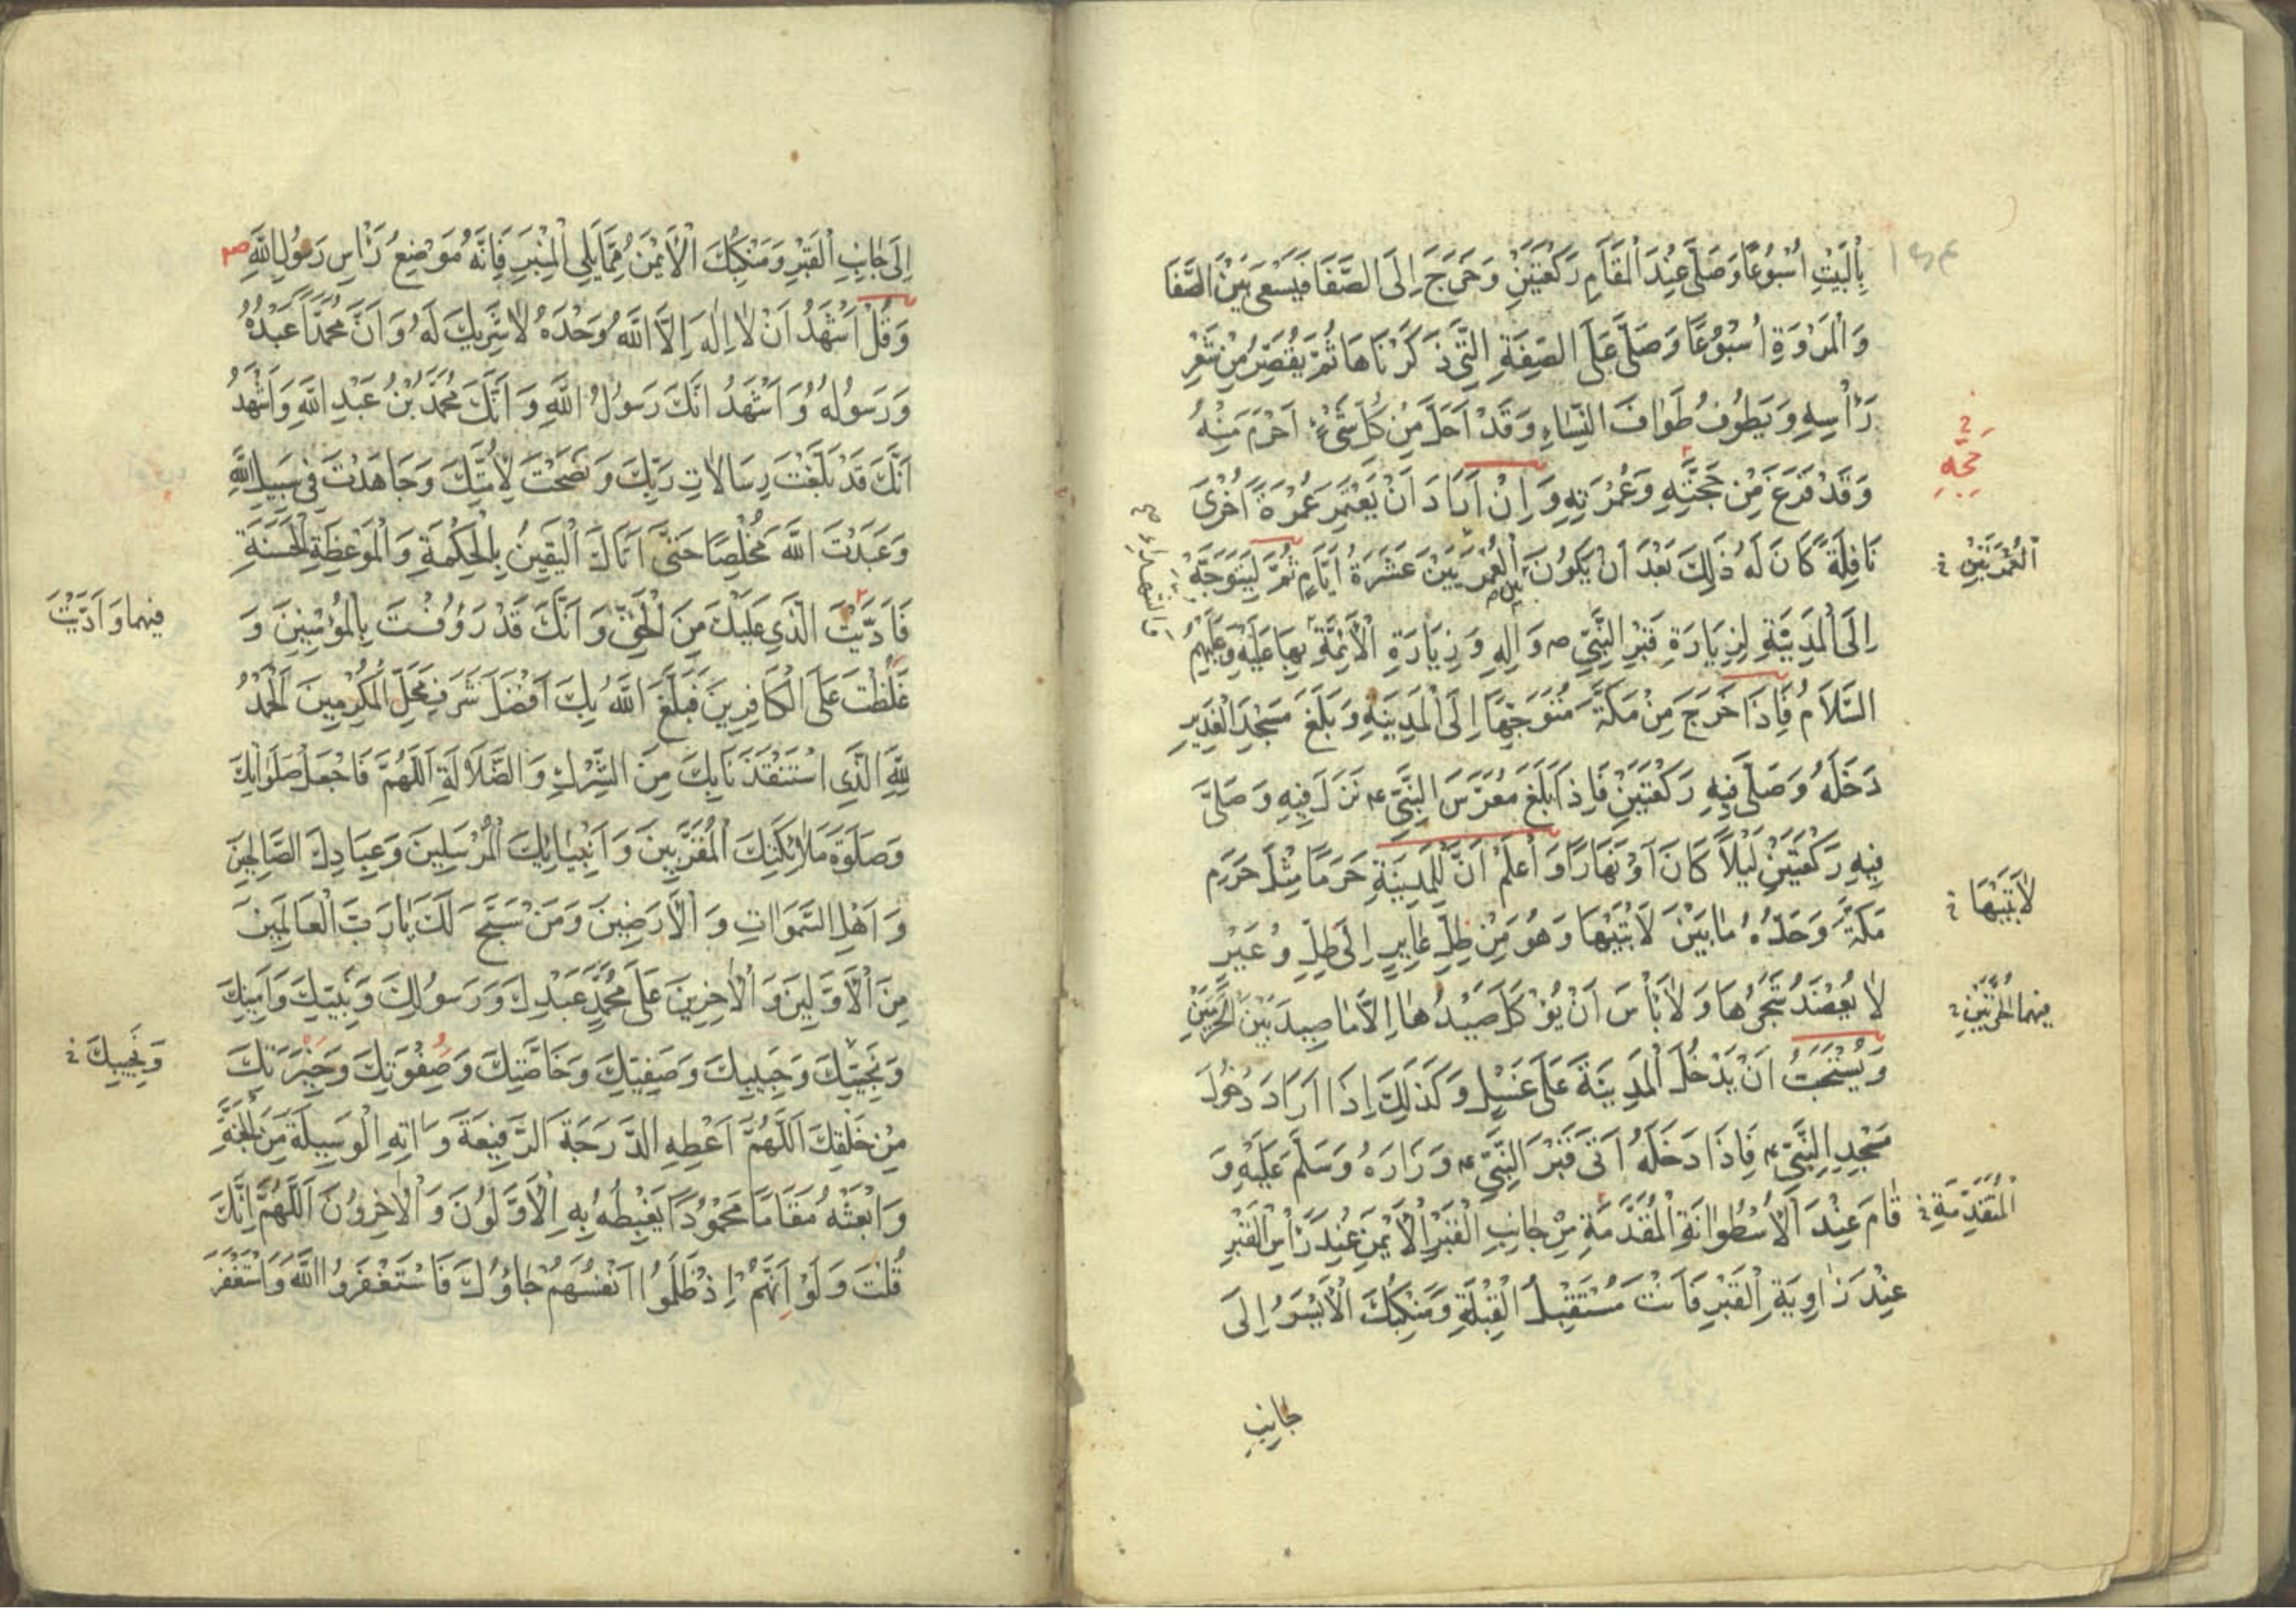 بِالْبَيْتِ أُسْبُوعًا وَصَلَّى عِنْدَ الْمَقَامِ رَكْعَتَيْنِ وَخَرَجَ إِلَى الصَّفَا فَيَسْعَى بَيْنَ الصَّفَا
وَالْمَرْوَةِ أُسْبُوعًا وَصَلَّى عَلَى الصِّفَةِ الَّتِي ذَكَرْنَاهَا ثُمَّ يُقَصِّرُ مِنْ شَعْرِ
رَأْسِهِ وَيَطُوفُ طَوَافَ النِّسَاءِ وَقَدْ أَحَلَّ مِنْ كُلِّ شَيْءٍ أَحْرَمَ مِنْهُ
وَقَدْ فَرَغَ مِنْ حَجَّتِهِ وَعُمْرَتِهِ وَإِنْ أَرَادَ أَنْ يَعْتَمِرَ عُمْرَةً أُخْرَى
حَجِّهِ
نَافِلَةً كَانَ لَهُ ذَلِكَ بَعْدَ أَنْ يَكُونَ بَيْنَ الْعُمْرَتَيْنِ عَشَرَةُ أَيَّامٍ ثُمَّ لِيَتَوَجَّهْ
الْعُمْرَتَيْنِ
إِلَى الْمَدِينَةِ لِزِيَارَةِ قَبْرِ النَّبِيِّ ص وَآلِهِ وَزِيَارَةِ الْأَئِمَّةِ بِهَا عَلَيْهِ وَعَلَيْهِمُ
السَّلَامُ فَإِذَا خَرَجَ مِنْ مَكَّةَ مُتَوَجِّهًا إِلَى الْمَدِينَةِ وَبَلَغَ مَسْجِدَ الْغَدِيرِ
دَخَلَهُ وَصَلَّى فِيهِ رَكْعَتَيْنِ فَإِذَا بَلَغَ مُعَرَّسَ النَّبِيِّ ع نَزَلَ فِيهِ وَصَلَّى
فِيهِ رَكْعَتَيْنِ لَيْلًا كَانَ أَوْ نَهَارًا وَاعْلَمْ أَنَّ لِلْمَدِينَةِ حَرَمًا مِثْلَ حَرَمِ
مَكَّةَ وَحَدُّهُ مَا بَيْنَ لَابَتَيْهَا وَهُوَ مِنْ ظِلِّ عَايِرٍ إِلَى ظِلِّ وُعَيْرٍ
لَابَتَيْهَا
لَا يُعْضَدُ شَجَرُهَا وَلَا بَأْسَ أَنْ يُؤْكَلَ صَيْدُهَا إِلَّا مَا صِيدَ بَيْنَ الْحَرَّتَيْنِ
وَيُسْتَحَبُّ أَنْ يَدْخُلَ الْمَدِينَةَ عَلَى غُسْلٍ وَكَذَلِكَ إِذَا أَرَادَ دُخُولَ
مَسْجِدِ النَّبِيِّ ع فَإِذَا دَخَلَهُ أَتَى قَبْرَ النَّبِيِّ ع وَزَارَهُ وَسَلَّمَ عَلَيْهِ وَ
قَامَ عِنْدَ الْأُسْطُوَانَةِ الْمُقَدَّمَةِ مِنْ جَانِبِ الْقَبْرِ الْأَيْمَنِ عِنْدَ رَأْسِ الْقَبْرِ
الْمُتَقَدِّمَةِ
عِنْدَ زَاوِيَةِ الْقَبْرِ فَأَنْتَ مُسْتَقْبِلُ الْقِبْلَةِ وَمَنْكِبُكَ الْأَيْسَرُ إِلَى
جَانِبِ
إِلَى جَانِبِ الْقَبْرِ وَمَنْكِبُكَ الْأَيْمَنُ مِمَّا يَلِي الْمِنْبَرَ فَإِنَّهُ مَوْضِعُ رَأْسِ رَسُولِ اللَّهِ ص
وَقُلْ أَشْهَدُ أَنْ لَا إِلَهَ إِلَّا اللَّهُ وَحْدَهُ لَا شَرِيكَ لَهُ وَأَنَّ مُحَمَّدًا عَبْدُهُ
وَرَسُولُهُ وَأَشْهَدُ أَنَّكَ رَسُولُ اللَّهِ وَأَنَّكَ مُحَمَّدُ بْنُ عَبْدِ اللَّهِ وَأَشْهَدُ
أَنَّكَ قَدْ بَلَّغْتَ رِسَالَاتِ رَبِّكَ وَنَصَحْتَ لِأُمَّتِكَ وَجَاهَدْتَ فِي سَبِيلِ اللَّهِ
وَعَبَدْتَ اللَّهَ مُخْلِصًا حَتَّى أَتَاكَ الْيَقِينُ بِالْحِكْمَةِ وَالْمَوْعِظَةِ الْحَسَنَةِ
فَأَدَّيْتَ الَّذِي عَلَيْكَ مِنَ الْحَقِّ وَأَنَّكَ قَدْ رَؤُفْتَ بِالْمُؤْمِنِينَ وَ
فيهما وَأَدَّيْتَ
غَلُظْتَ عَلَى الْكَافِرِينَ فَبَلَّغَ اللَّهُ بِكَ أَفْضَلَ شَرَفِ مَحَلِّ الْمُكَرَّمِينَ الْحَمْدُ
لِلَّهِ الَّذِي اسْتَنْقَذَنَا بِكَ مِنَ الشِّرْكِ وَالضَّلَالَةِ اللَّهُمَّ فَاجْعَلْ صَلَوَاتِكَ
وَصَلَوةَ مَلَائِكَتِكَ الْمُقَرَّبِينَ وَأَنْبِيَائِكَ الْمُرْسَلِينَ وَعِبَادِكَ الصَّالِحِينَ
وَأَهْلِ السَّمَوَاتِ وَالْأَرَضِينَ وَمَنْ سَبَّحَ لَكَ يَا رَبَّ الْعَالَمِينَ
مِنَ الْأَوَّلِينَ وَالْآخِرِينَ عَلَى مُحَمَّدٍ عَبْدِكَ وَرَسُولِكَ وَنَبِيِّكَ وَأَمِينِكَ
وَنَجِيِّكَ وَحَبِيبِكَ وَصَفِيِّكَ وَخَاصَّتِكَ وَصَفْوَتِكَ وَخِيَرَتِكَ
وَنَجِيبِكَ
مِنْ خَلْقِكَ اللَّهُمَّ أَعْطِهِ الدَّرَجَةَ الرَّفِيعَةَ وَآتِهِ الْوَسِيلَةَ مِنَ الْجَنَّةِ
وَابْعَثْهُ مَقَامًا مَحْمُودًا يَغْبِطُهُ بِهِ الْأَوَّلُونَ وَالْآخِرُونَ اللَّهُمَّ إِنَّكَ
قُلْتَ وَلَوْ أَنَّهُمْ إِذْ ظَلَمُوا أَنْفُسَهُمْ جَاؤُكَ فَاسْتَغْفَرُوا اللَّهَ وَاسْتَغْفَرَ